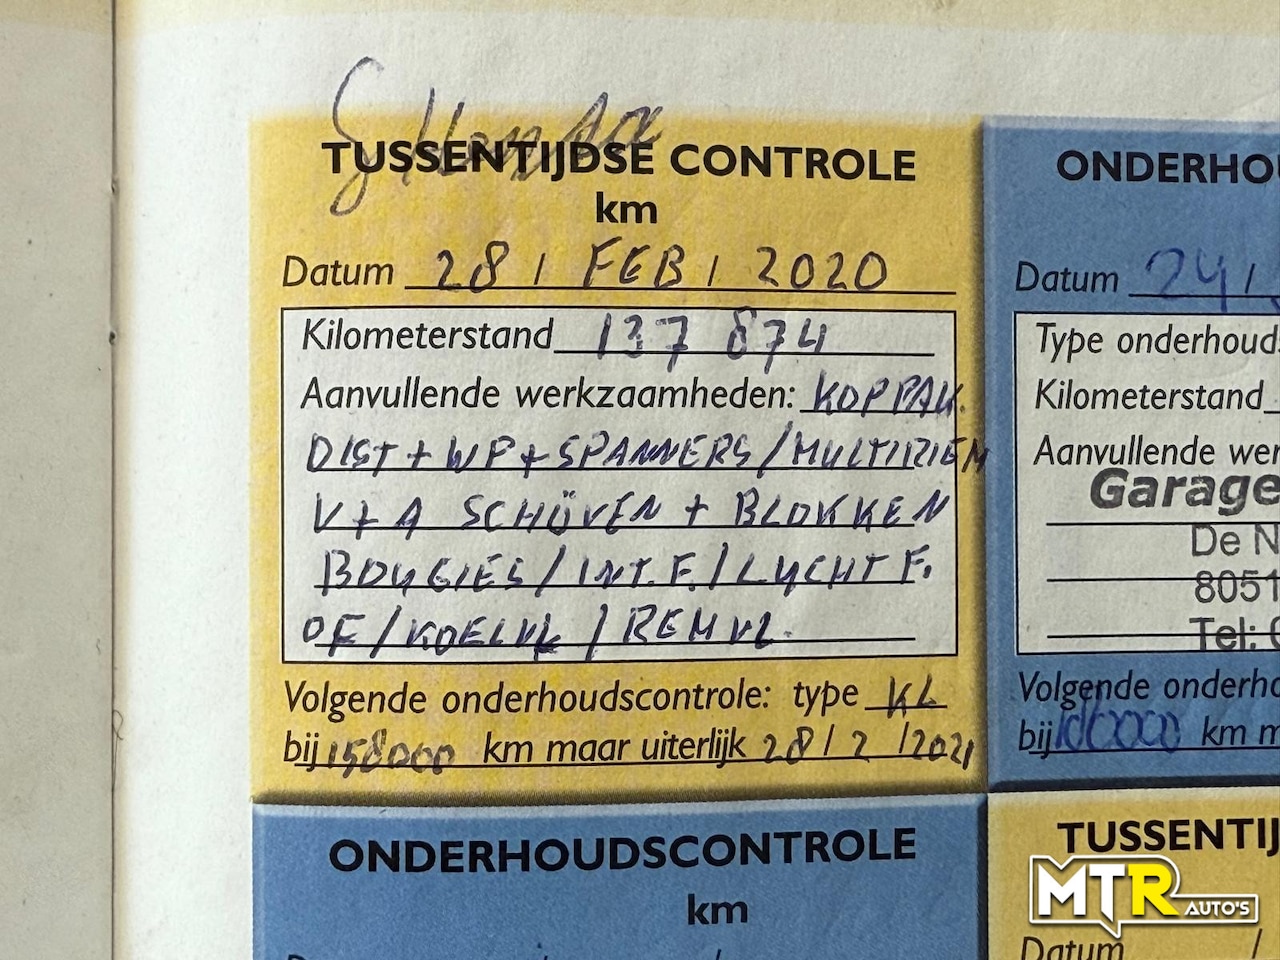 TUSSENTIJDSE CONTROLE
km
Datum 28 / FEB / 2020
Kilometerstand 137 874
Aanvullende werkzaamheden: KOPPAK.
DIST + WP + SPANNERS / MULTIRIEM
V + A SCHÜVEN + BLOKKEN
BOUGIES / INT. F. / LUCHT F.
OF / KOELVL / REMVL.
Volgende onderhoudscontrole: type KL
bij 158000 km maar uiterlijk 28 / 2 / 2021
ONDERHOU
Datum 24 /
Type onderhoud
Kilometerstand
Aanvullende wer
Garage
De N
8051
Tel:
Volgende onderho
bij km m
ONDERHOUDSCONTROLE
km
TUSSENTIJ
Datum /
MTR AUTO'S